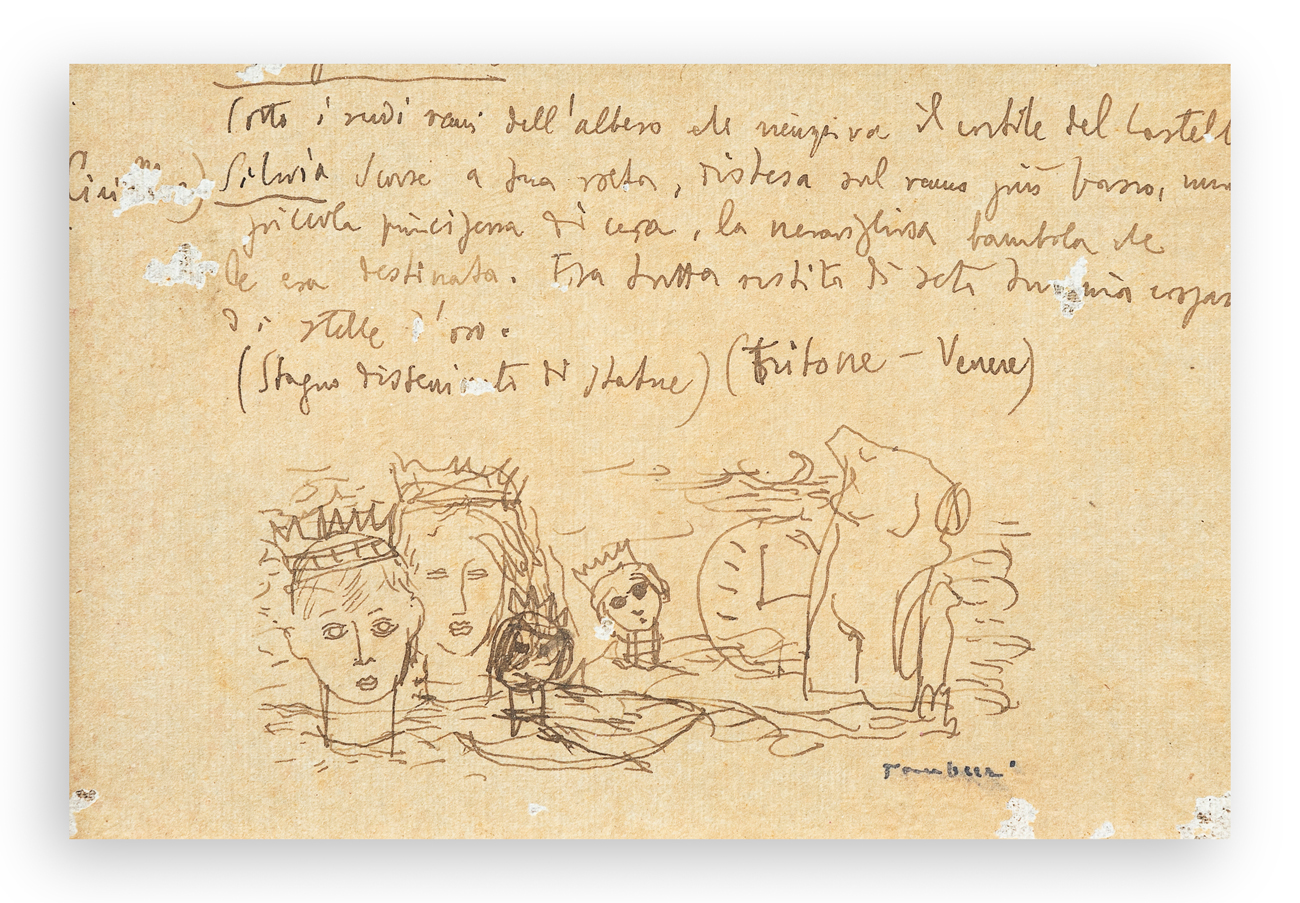 Sotto i nudi rami dell'albero che riempiva il cortile del Castell
Silvia scorse a sua volta, distesa sul ramo più basso, una
piccola principessa di cera, la meravigliosa bambola che
le era destinata. Era tutta vestita di seta
di stelle d'oro.
(Stagno disseminato di statue) (Tritone – Venere)
Tamburi